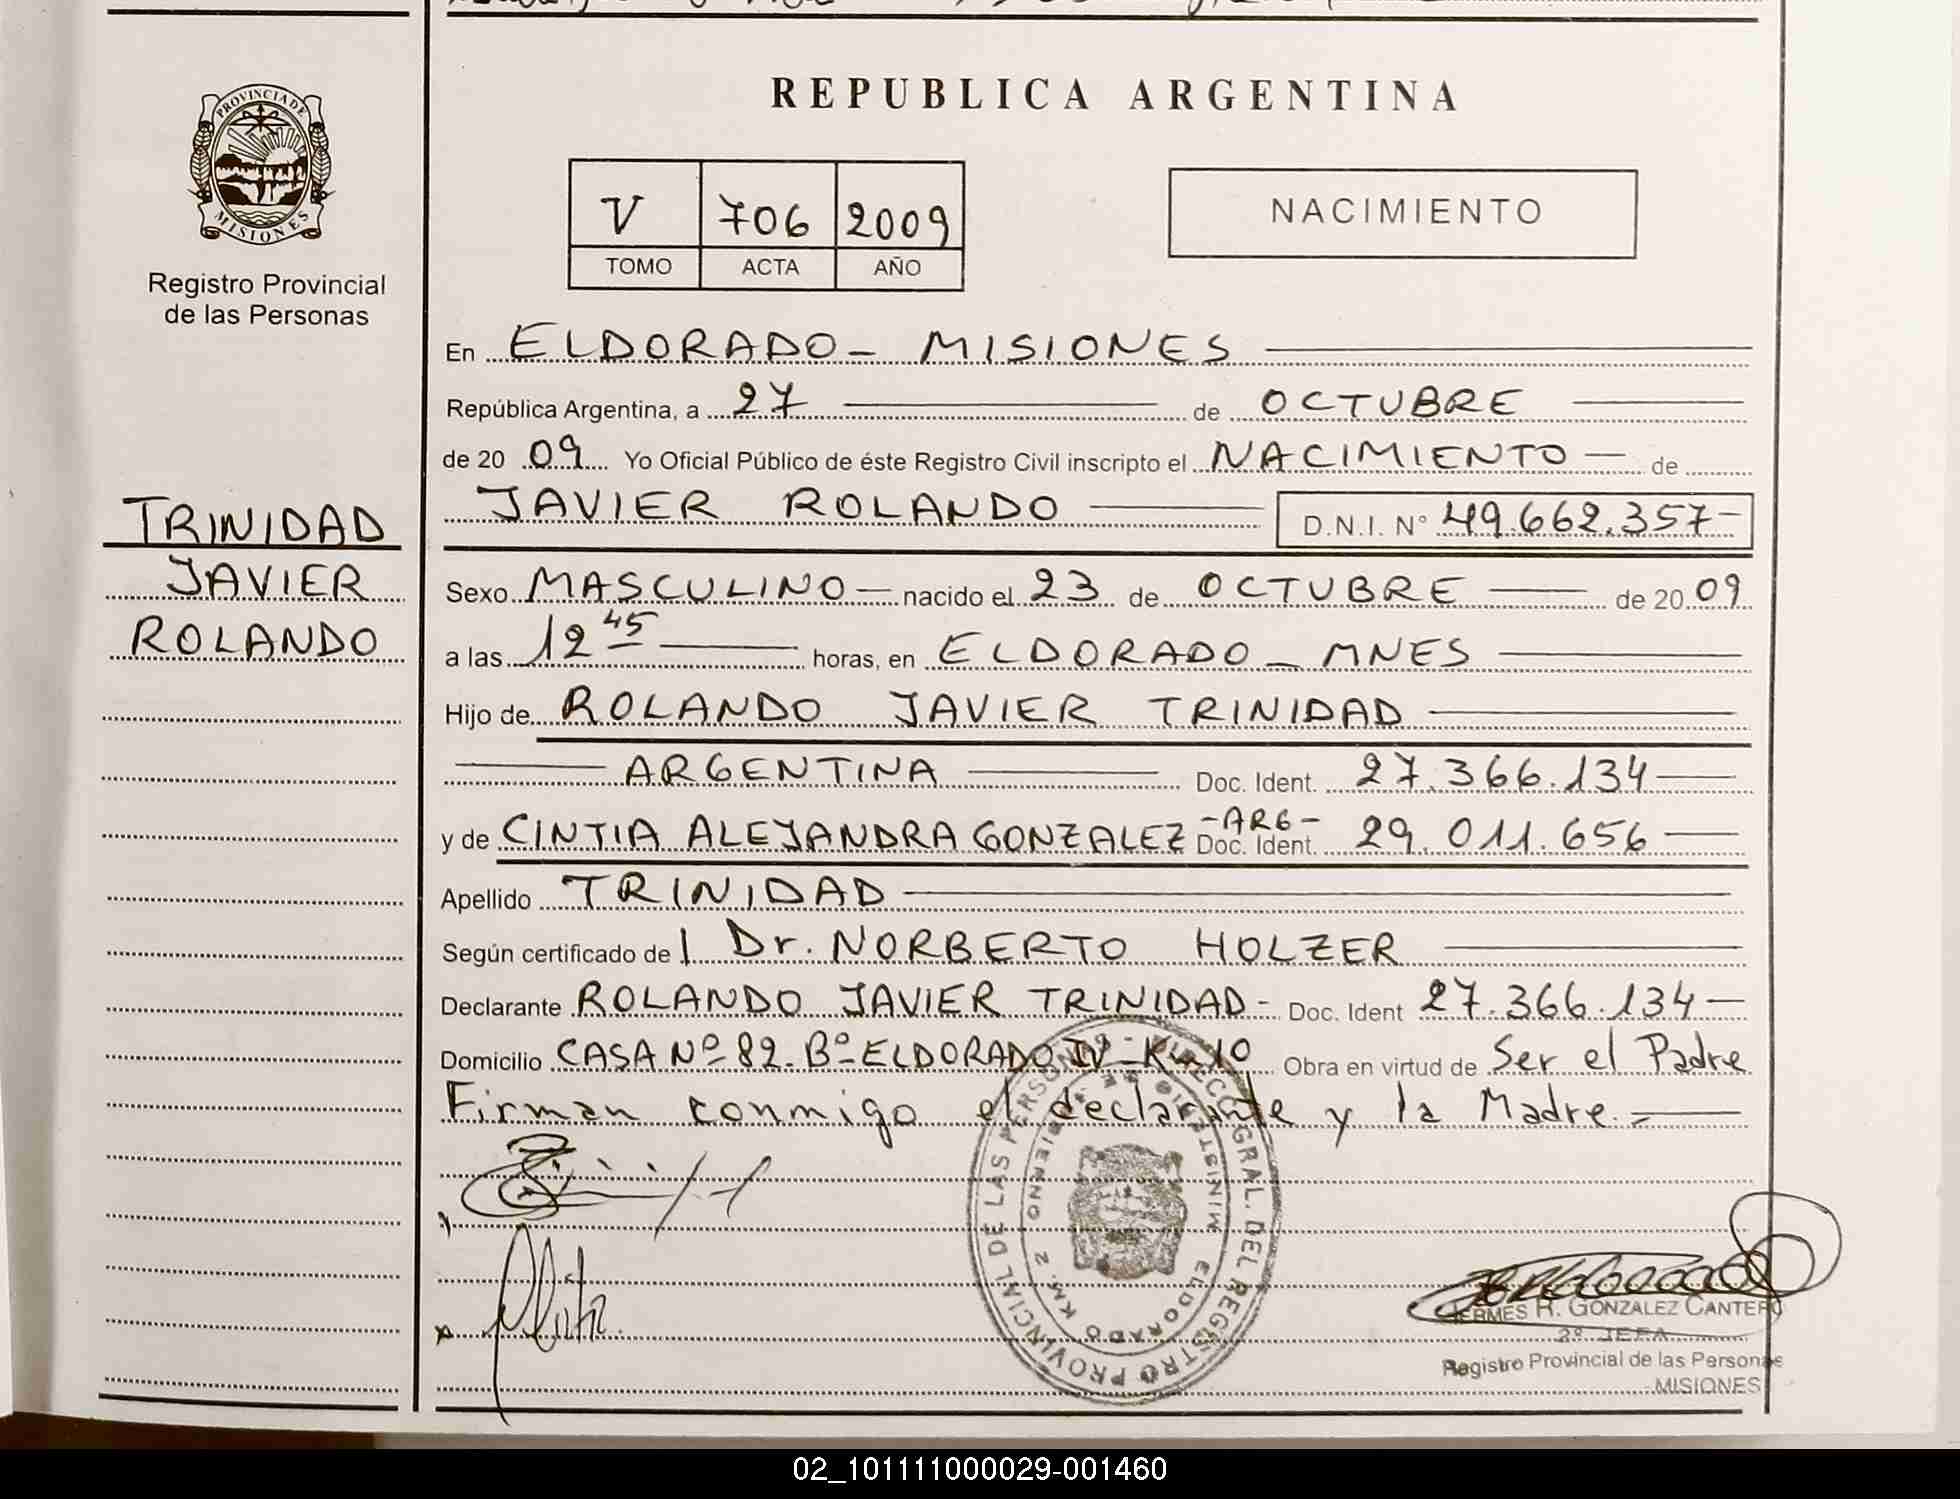 REPUBLICA ARGENTINA
PROVINCIA DE
MISIONES
Registro Provincial
de las Personas
V 706 2009
TOMO ACTA AÑO
NACIMIENTO
En ELDORADO - MISIONES
República Argentina, a 27 de OCTUBRE
de 20 09 Yo Oficial Público de éste Registro Civil inscripto el NACIMIENTO - de
JAVIER ROLANDO D.N.I. N° 49.662.357-
TRINIDAD
JAVIER
ROLANDO
Sexo MASCULINO - nacido el 23 de OCTUBRE de 20 09
a las 12 45 horas, en ELDORADO - MNES
Hijo de ROLANDO JAVIER TRINIDAD
ARGENTINA Doc. Ident. 27.366.134
y de CINTIA ALEJANDRA GONZALEZ -ARG- Doc. Ident. 29.011.656
Apellido TRINIDAD
Según certificado de l Dr. NORBERTO HOLZER
Declarante ROLANDO JAVIER TRINIDAD - Doc. Ident 27.366.134
Domicilio CASA Nº 82. Bº ELDORADO IV - Km 10 Obra en virtud de Ser el Padre
Firman conmigo el declarante y la Madre.-
DIRECC. GRAL. DEL REGISTRO PROVINCIAL DE LAS PERSONAS
ELDORADO KM. 2
HERMES R. GONZALEZ CANTERO
2º JEFA
Registro Provincial de las Personas
MISIONES
02_101111000029-001460